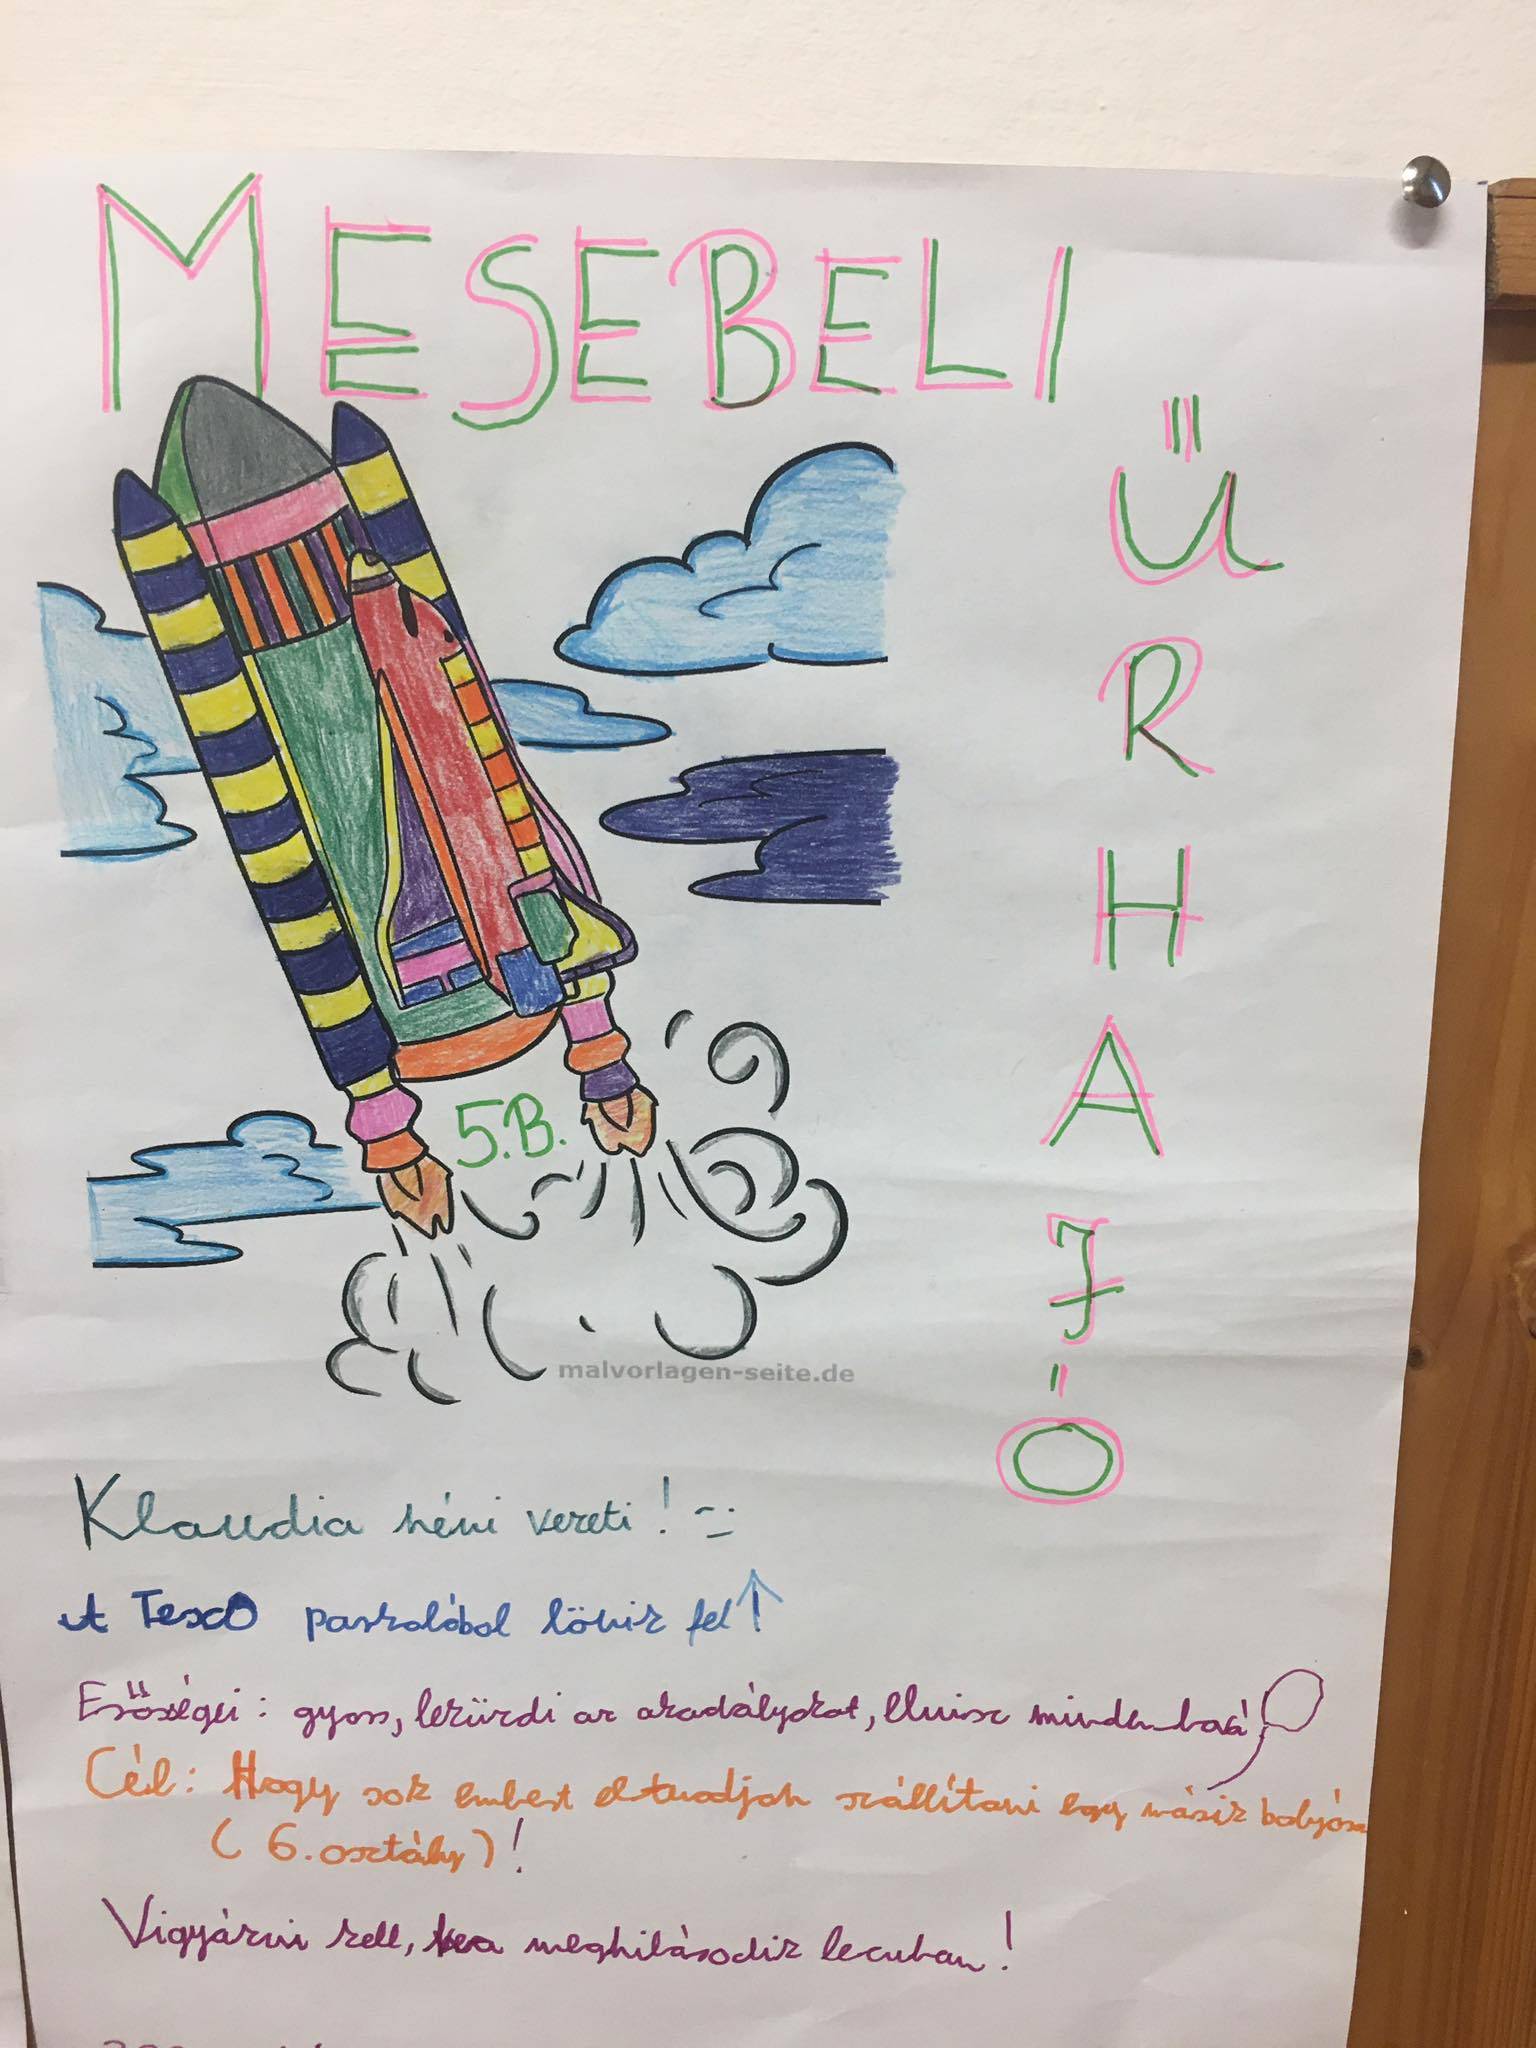 MESEBELI
ŰRHAJÓ
5.B.
malvorlagen-seite.de
Klaudia néni vezeti!
A TescO parkolóból lövik fel!
Erősségei: gyors, lekűzdi az akadályokat, elvisz minden hová
Cél: Hogy sok embert eltuadjon szállítani egy másik bolyóra
(6. osztály)!
Vigyázni kell, ha meghibásodik lezuhan!